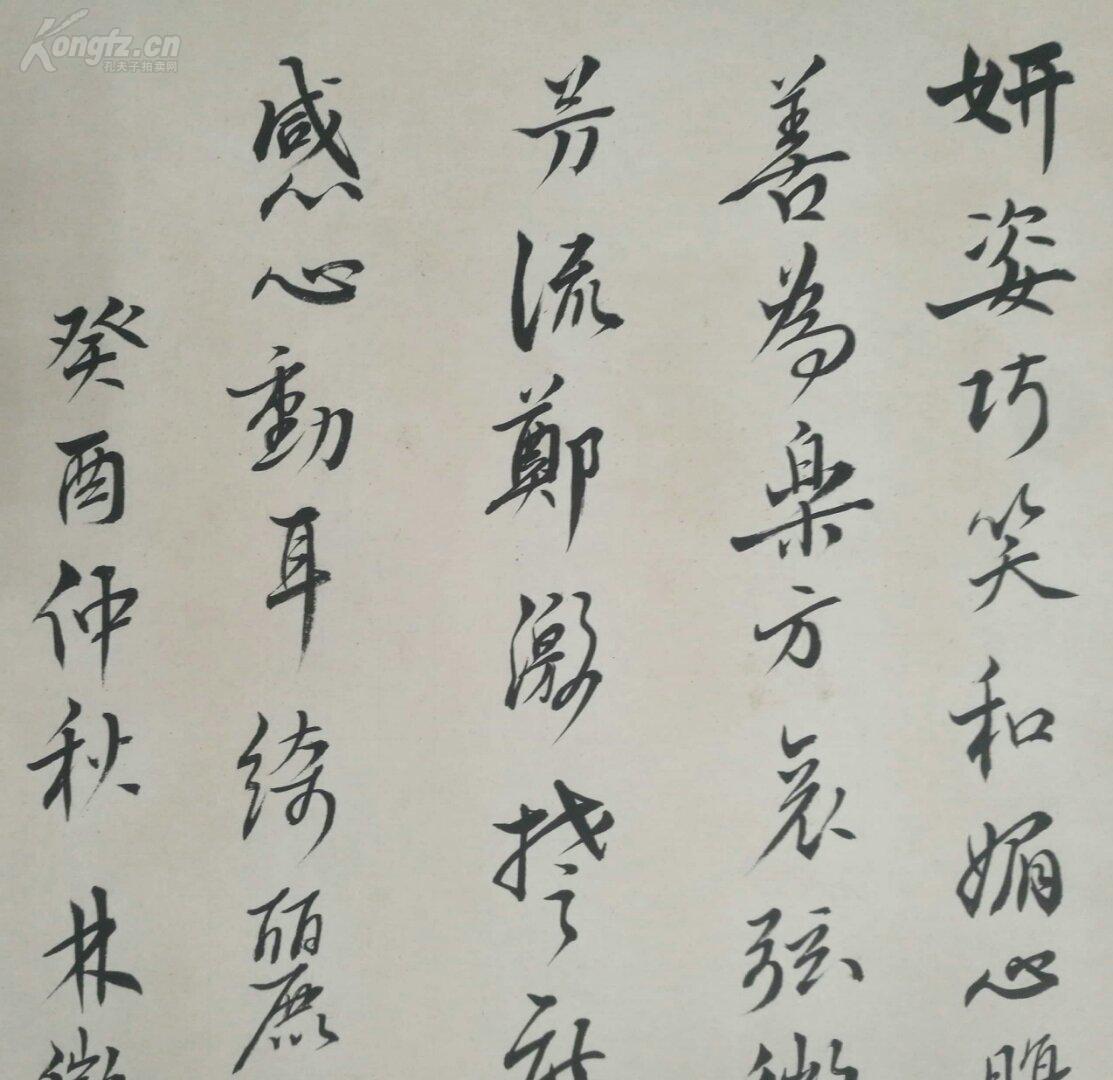 Kongfz.cn
孔夫子拍卖网
妍姿巧笑和媚心
善為樂方哀弦微
芳流鄭激楚度
感心動耳綺麗
癸酉仲秋 林